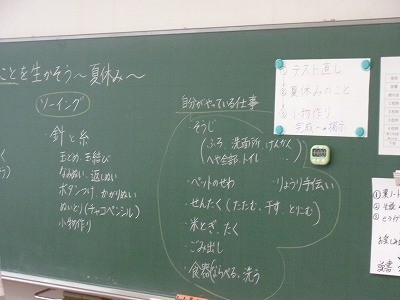 ことを生かそう〜夏休み〜
ソーイング
針と糸
玉どめ、玉結び
なみぬい、返しぬい
ボタンつけ、かがりぬい
ぬいとり(チャコペンシル)
小物作り
自分がやっている仕事
・そうじ
(ふろ、洗面所、げんかん
へや全部、トイレ …)
・ペットのせわ
・りょうり手伝い
・せんたく(たたむ、干す、とりこむ)
・米とぎ、たく
・ごみ出し
・食器(ならべる、洗う)
テスト直し
夏休みのこと
小物作り